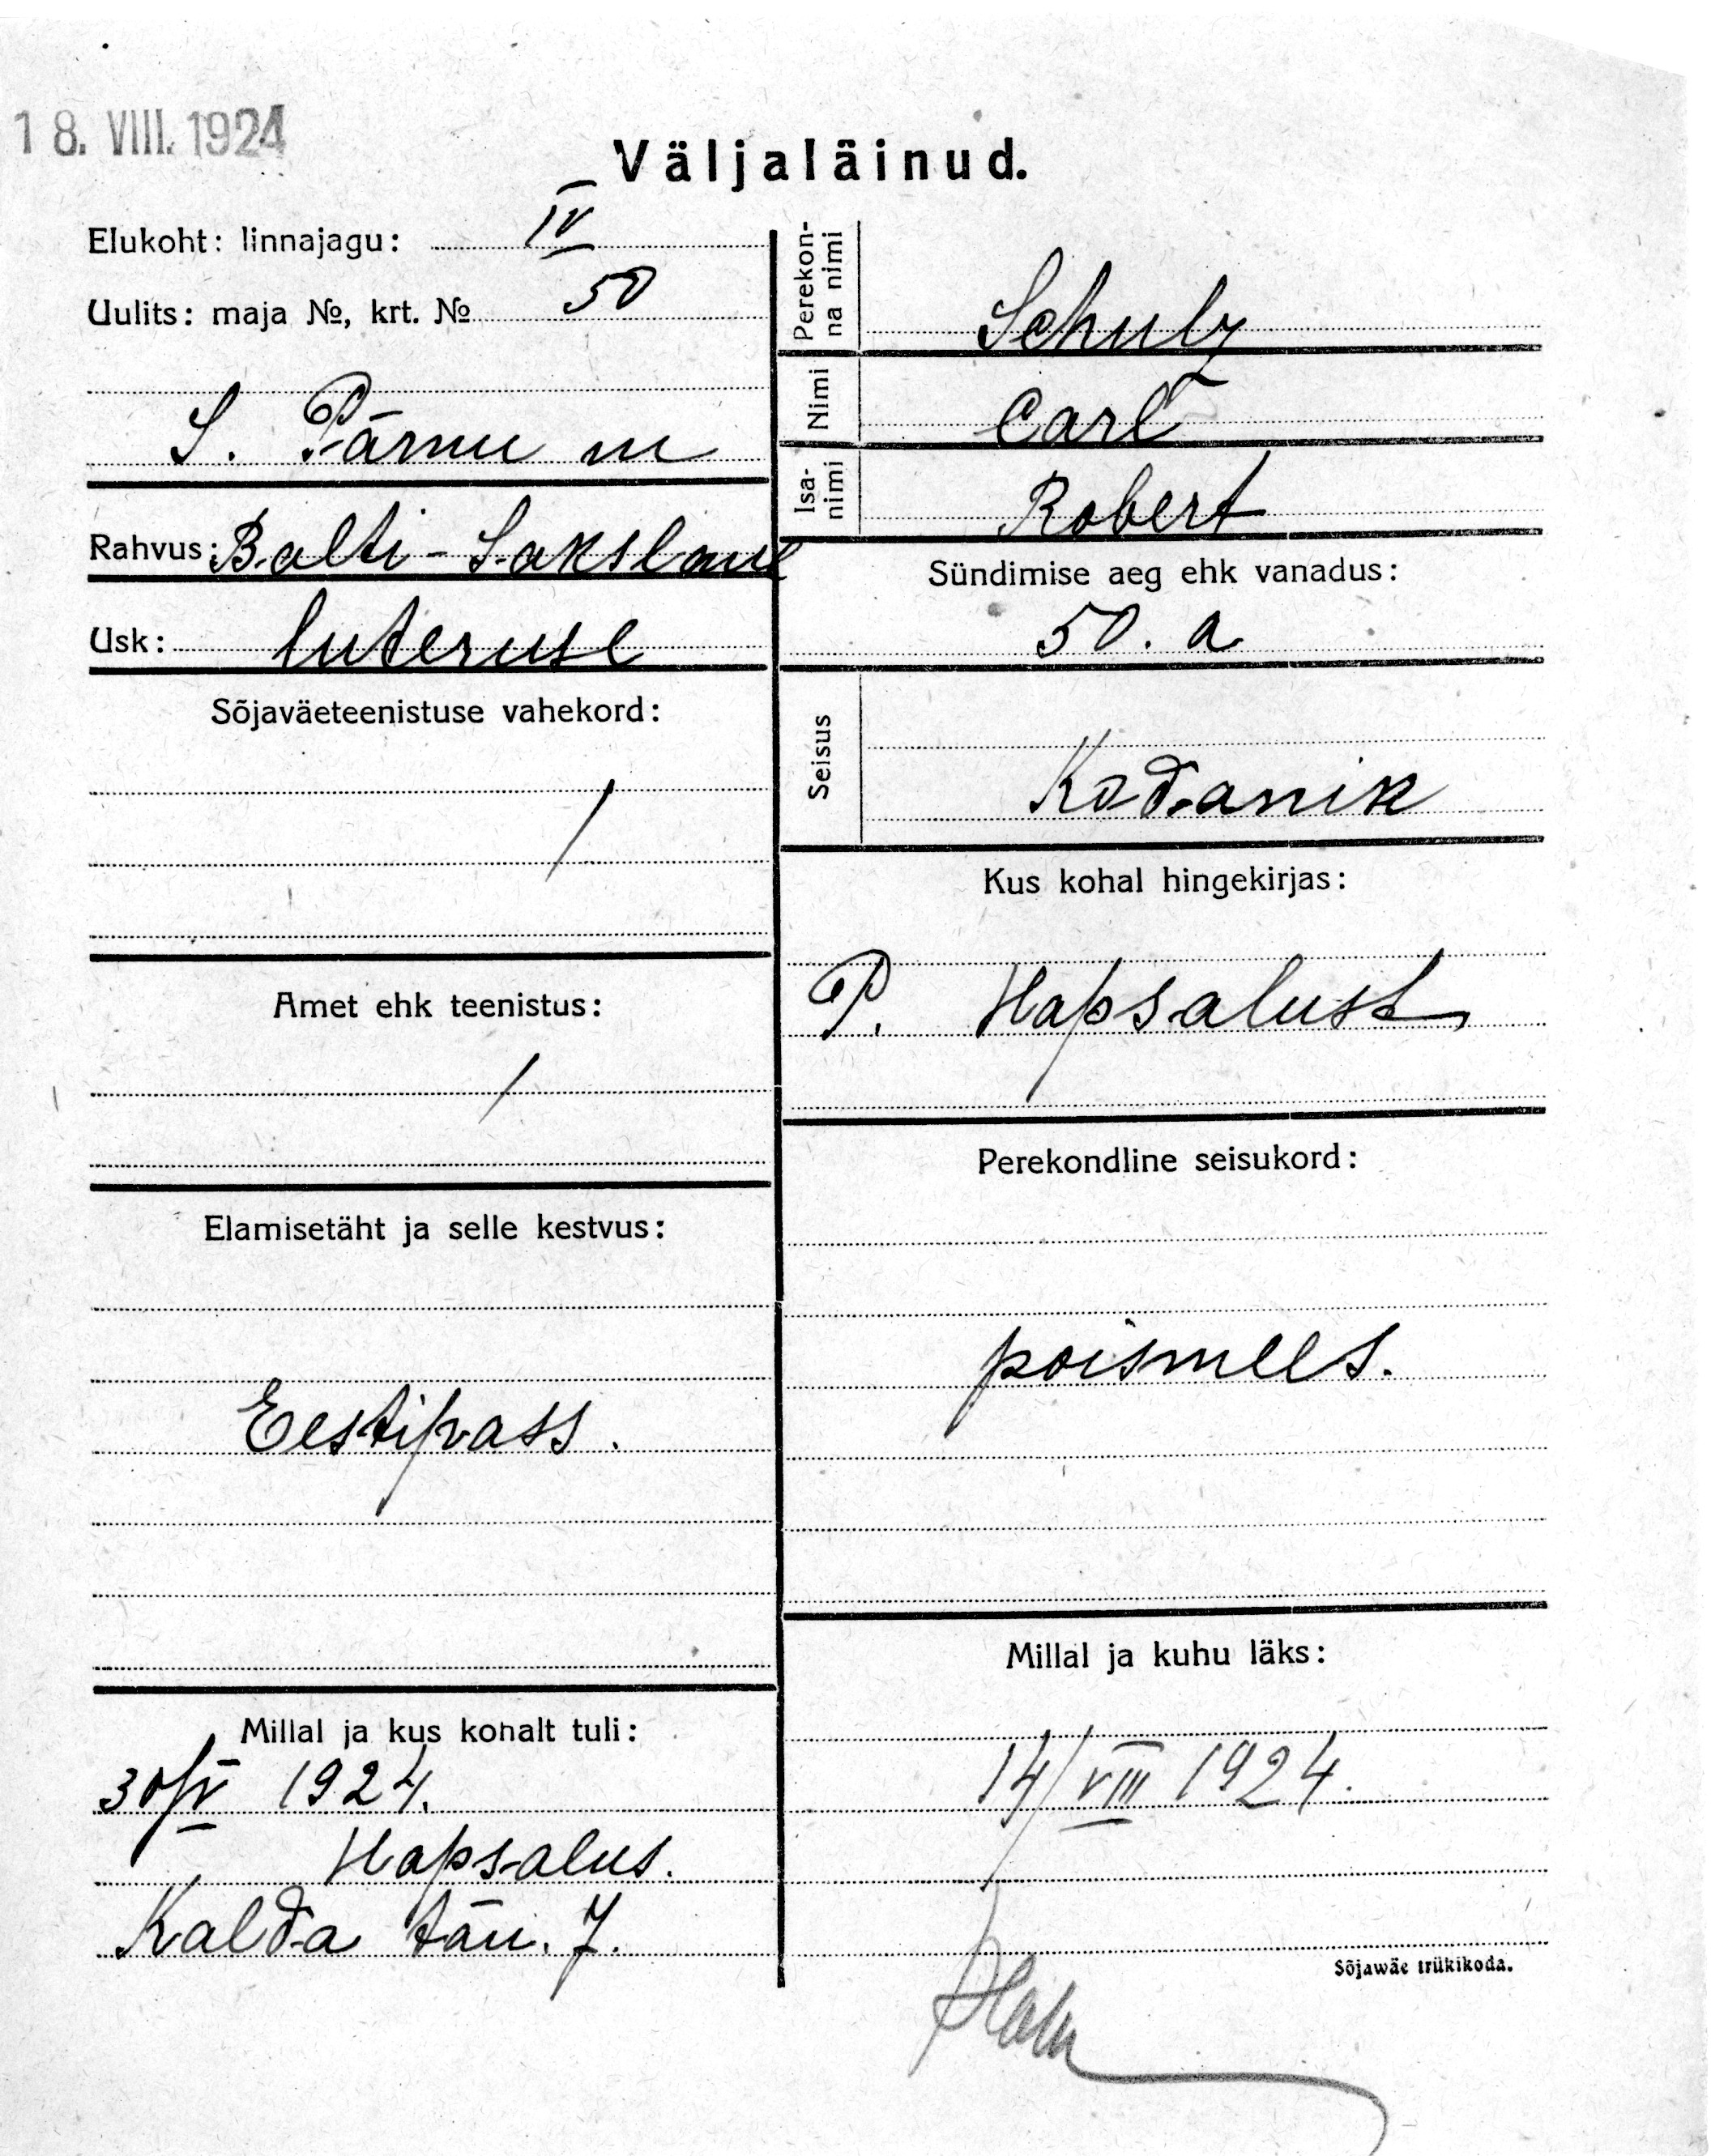 18. VIII. 1924
Väljaläinud.
Elukoht: linnajagu: IV
Uulits: maja №, krt. № 50
S. Pärnu m
Rahvus: Balti-Sakslane
Usk: luteruse
Sõjaväeteenistuse vahekord:
/
Amet ehk teenistus:
/
Elamisetäht ja selle kestvus:
Eestipass.
Millal ja kus kohalt tuli:
30/V 1924.
Hapsalus.
Kalda tän. 7.
Perekon-
na nimi
Schulz
Nimi Carl
Isa-
nimi
Robert
Sündimise aeg ehk vanadus:
50. a
Seisus Kodanik
Kus kohal hingekirjas:
P. Hapsalust
Perekondline seisukord:
poismees.
Millal ja kuhu läks:
14/VIII 1924.
Sõjawäe trükikoda.